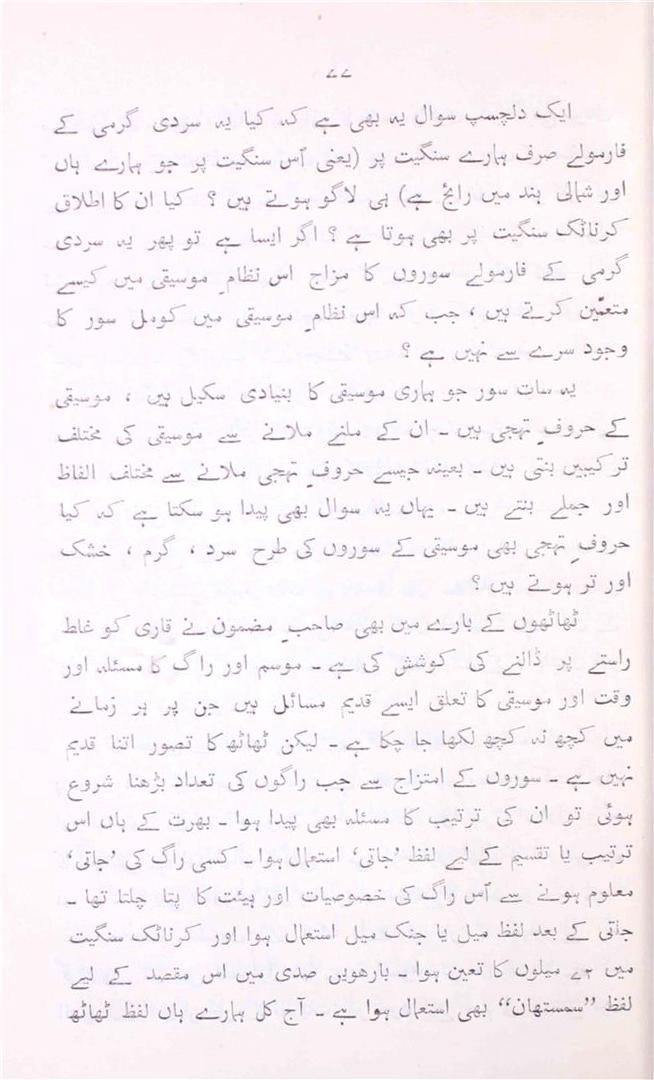 ۷۷
ایک دلچسپ سوال یہ بھی ہے کہ کیا یہ سردی گرمی کے
فارمولے صرف ہمارے سنگیت پر (یعنی اُس سنگیت پر جو ہمارے ہاں
اور شمالی ہند میں رائج ہے) ہی لاگو ہوتے ہیں ؟ کیا ان کا اطلاق
کرناٹک سنگیت پر بھی ہوتا ہے ؟ اگر ایسا ہے تو پھر یہ سردی
گرمی کے فارمولے سوروں کا مزاج اس نظامِ موسیقی میں کیسے
متعیّن کرتے ہیں ، جب کہ اس نظامِ موسیقی میں کومل سور کا
وجود سرے سے نہیں ہے ؟
یہ سات سور جو ہماری موسیقی کا بنیادی سکیل ہیں ، موسیقی
کے حروفِ تہجی ہیں ۔ ان کے ملنے ملانے سے موسیقی کی مختلف
ترکیبیں بنتی ہیں ۔ بعینہ جیسے حروفِ تہجی ملانے سے مختلف الفاظ
اور جملے بنتے ہیں ۔ یہاں یہ سوال بھی پیدا ہو سکتا ہے کہ کیا
حروفِ تہجی بھی موسیقی کے سوروں کی طرح سرد ، گرم ، خشک
اور تر ہوتے ہیں ؟
ٹھاٹھوں کے بارے میں بھی صاحبِ مضمون نے قاری کو غلط
راستے پر ڈالنے کی کوشش کی ہے ۔ موسم اور راگ کا مسئلہ اور
وقت اور موسیقی کا تعلق ایسے قدیم مسائل ہیں جن پر ہر زمانے
میں کچھ نہ کچھ لکھا جا چکا ہے ۔ لیکن ٹھاٹھ کا تصور اتنا قدیم
نہیں ہے ۔ سوروں کے امتزاج سے جب راگوں کی تعداد بڑھنا شروع
ہوئی تو ان کی ترتیب کا مسئلہ بھی پیدا ہوا ۔ بھرت کے ہاں اس
ترتیب یا تقسیم کے لیے لفظ ’جاتی‘ استعمال ہوا ۔ کسی راگ کی ’جاتی‘
معلوم ہونے سے اُس راگ کی خصوصیات اور ہیئت کا پتا چلتا تھا ۔
جاتی کے بعد لفظ میل یا جنک میل استعمال ہوا اور کرناٹک سنگیت
میں ۷۲ میلوں کا تعین ہوا ۔ بارھویں صدی میں اس مقصد کے لیے
لفظ ”سمستھان“ بھی استعمال ہوا ہے ۔ آج کل ہمارے ہاں لفظ ٹھاٹھ